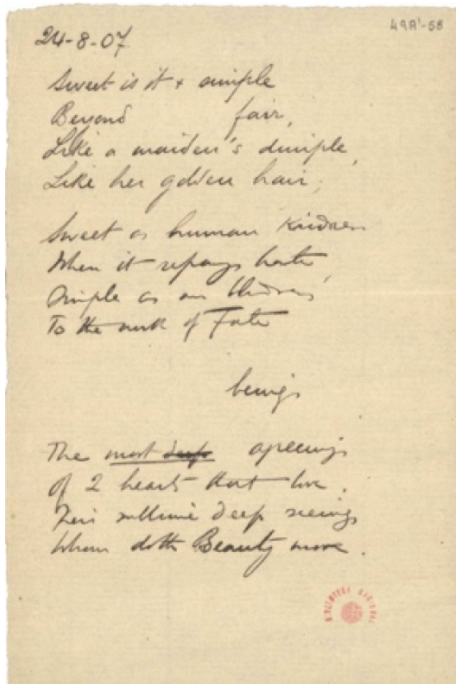 49A¹-58
24-8-07
Sweet is it + simple
Beyond fair,
Like a maiden's dimple,
Like her golden hair;
Sweet as human kindness
When it repays hate,
Simple as our blindness
To the work of Fate
beings
The most deep agreeings
Of 2 hearts that love.
Their sublime deep seeings
Whom doth Beauty move.
BIBLIOTECA NACIONAL